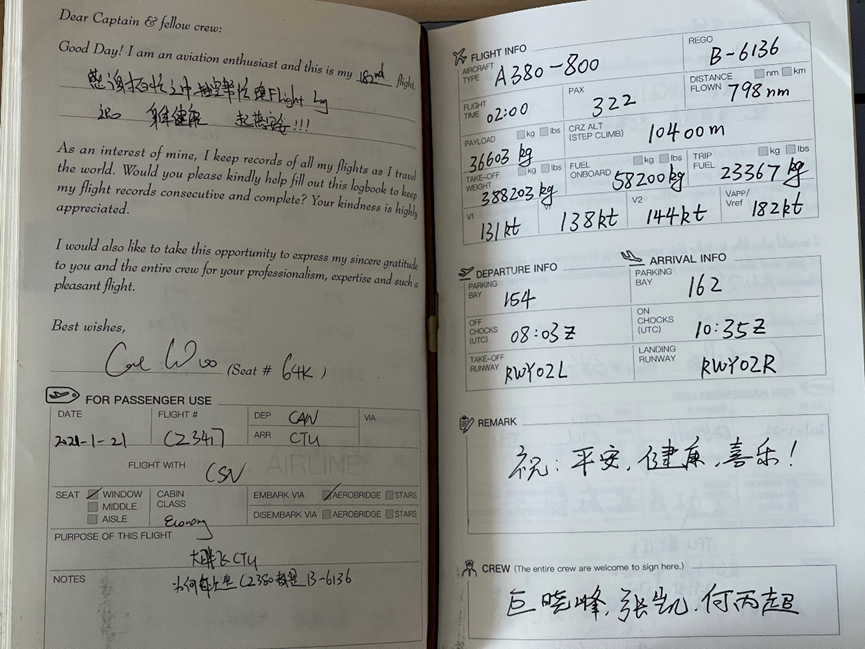 Dear Captain & fellow crew:
Good Day! I am an aviation enthusiast and this is my 182nd flight.
感谢 百忙之中 Flight Log
祝 身体健康 !!!
As an interest of mine, I keep records of all my flights as I travel
the world. Would you please kindly help fill out this logbook to keep
my flight records consecutive and complete? Your kindness is highly
appreciated.
I would also like to take this opportunity to express my sincere gratitude
to you and the entire crew for your professionalism, expertise and such a
pleasant flight.
Best wishes,
(Seat # 64K)
FOR PASSENGER USE
DATE FLIGHT # DEP CAN VIA
2021-1-21 CZ3417 ARR CTU
FLIGHT WITH CSN
SEAT WINDOW MIDDLE AISLE
CABIN CLASS Economy
EMBARK VIA AEROBRIDGE STAIRS
DISEMBARK VIA AEROBRIDGE STAIRS
PURPOSE OF THIS FLIGHT
大胖飞CTU
NOTES
为何每次坐CZ380都是B-6136
FLIGHT INFO
AIRCRAFT TYPE A380-800 REGO B-6136
FLIGHT TIME 02:00 PAX 322 DISTANCE FLOWN nm km 798nm
PAYLOAD kg lbs 36603 kg CRZ ALT (STEP CLIMB) 10400m
TAKE-OFF WEIGHT kg lbs 388203 kg FUEL ONBOARD kg lbs 58200kg TRIP FUEL kg lbs 23367 kg
V1 131kt 138kt V2 144kt VAPP/Vref 182kt
DEPARTURE INFO
PARKING BAY 154
OFF CHOCKS (UTC) 08:03Z
TAKE-OFF RUNWAY RWY02L
ARRIVAL INFO
PARKING BAY 162
ON CHOCKS (UTC) 10:35Z
LANDING RUNWAY RWY02R
REMARK
祝：平安，健康，喜乐！
CREW (The entire crew are welcome to sign here.)
巨晓峰，张凯，何丙超